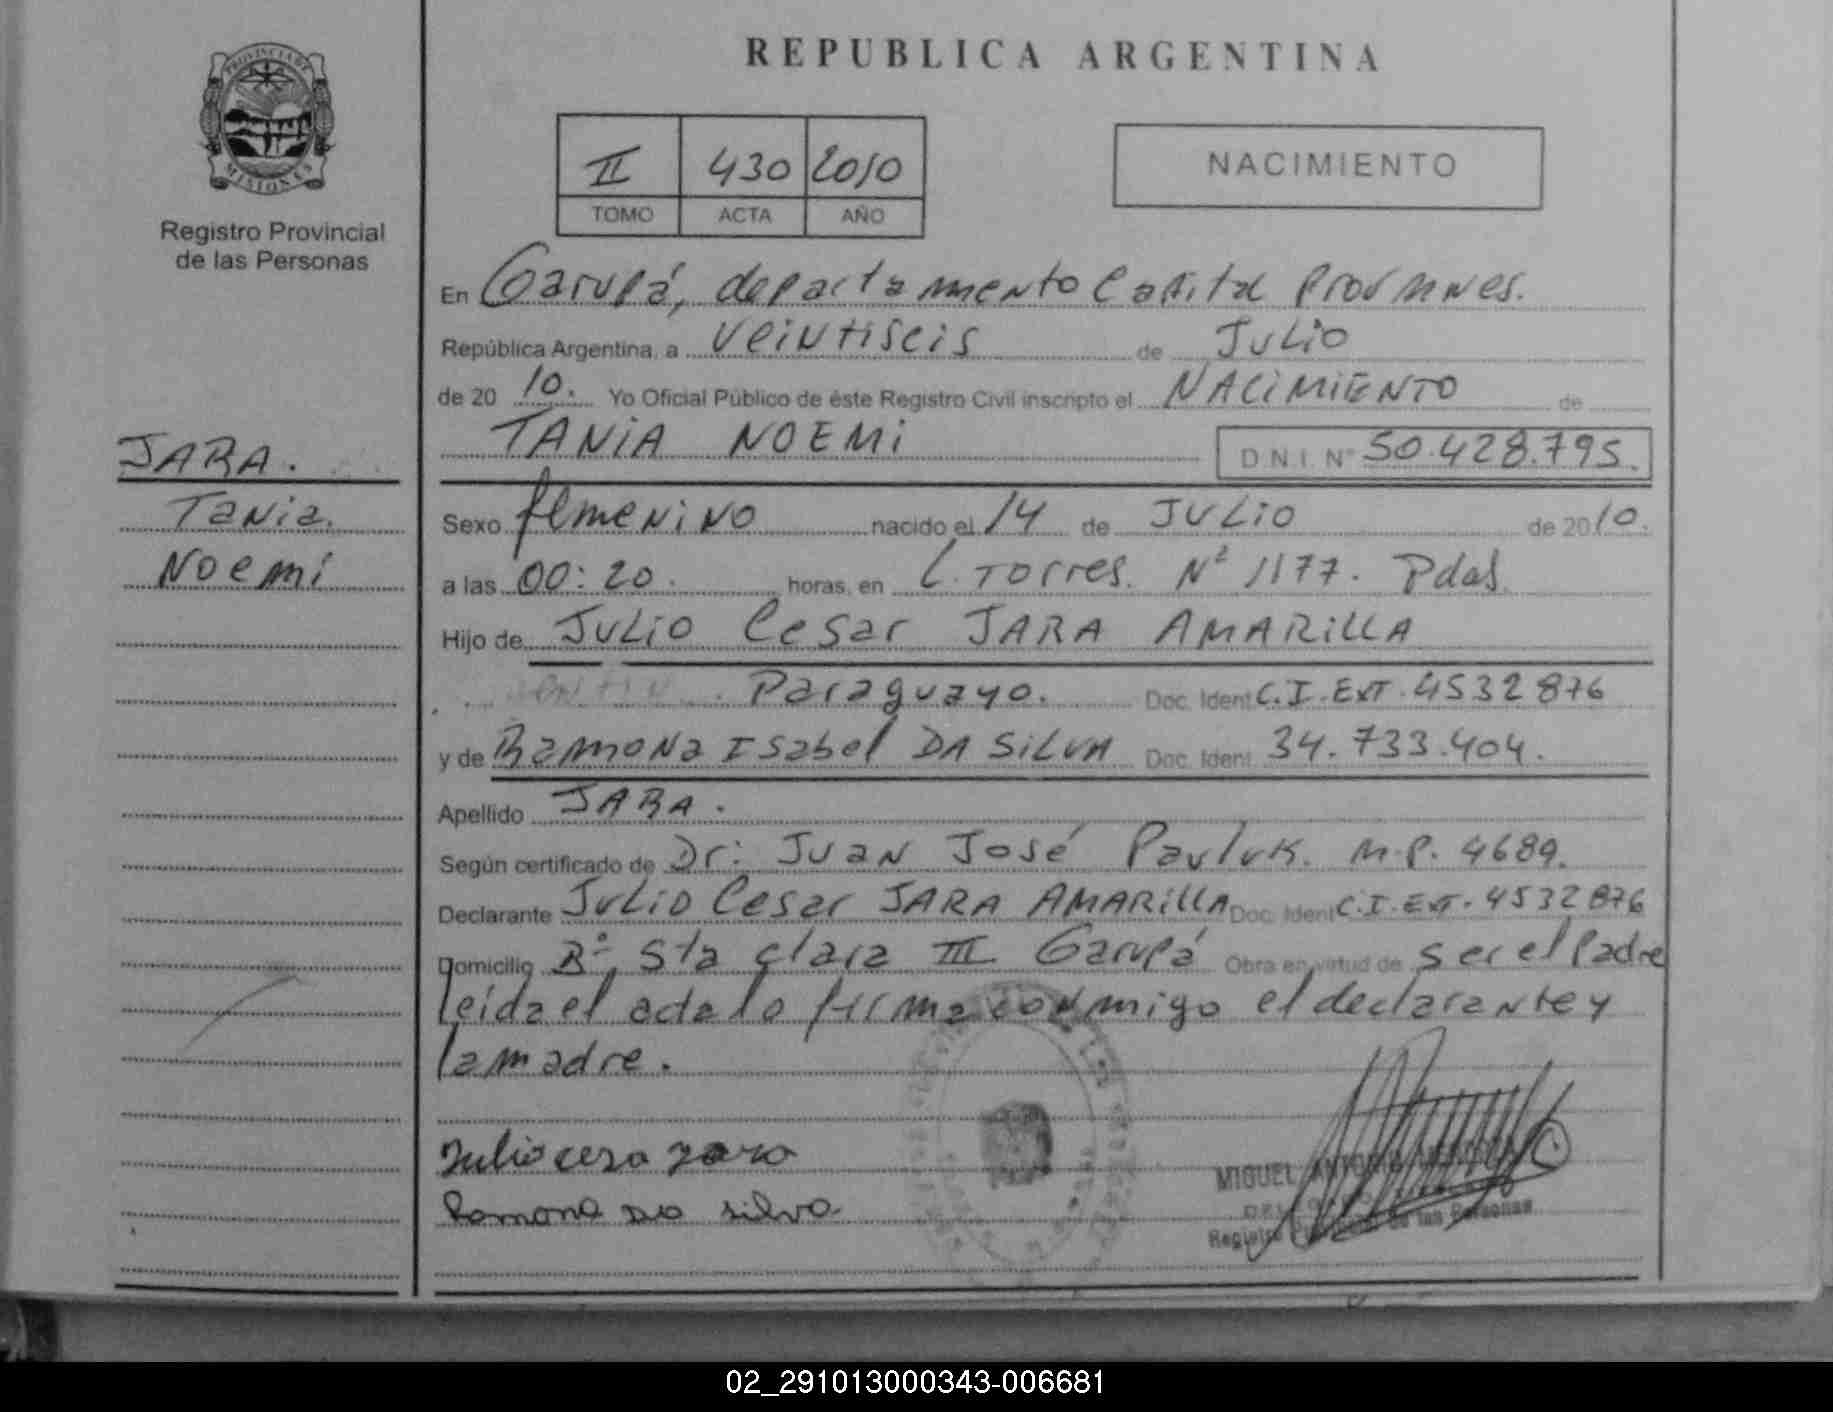 REPUBLICA ARGENTINA
PROVINCIA DE
MISIONES
Registro Provincial
de las Personas
II 430 2010
TOMO ACTA AÑO
NACIMIENTO
En Garupá, departamento Capital Prov Mnes.
República Argentina, a veintiseis de Julio
de 20 10. Yo Oficial Público de éste Registro Civil inscripto el NACIMIENTO de
TANIA NOEMI D.N.I. Nº 50.428.795.
JARA.
Tania
Noemi
Sexo femenino nacido el 14 de JULIO de 2010.
a las 00:20. horas, en L. Torres. Nº 1177. Pdas.
Hijo de JULIO Cesar JARA AMARILLA
Paraguayo. Doc. Ident C.I. Ext. 4532876
y de Ramona Isabel DA SILVA Doc. Ident. 34.733.404.
Apellido JARA.
Según certificado de Dr: Juan José Pavluk. M.P. 4689.
Declarante Julio Cesar JARA AMARILLA Doc. Ident C.I. Ext. 4532876
Domicilio Bº Sta Clara III Garupá Obra en virtud de ser el Padre
leida el acta la firma conmigo el declarante y
la madre.
Julio cesa jara
Ramona Da silva
MIGUEL ANTONIO
Registro Provincial de las Personas
02_291013000343-006681